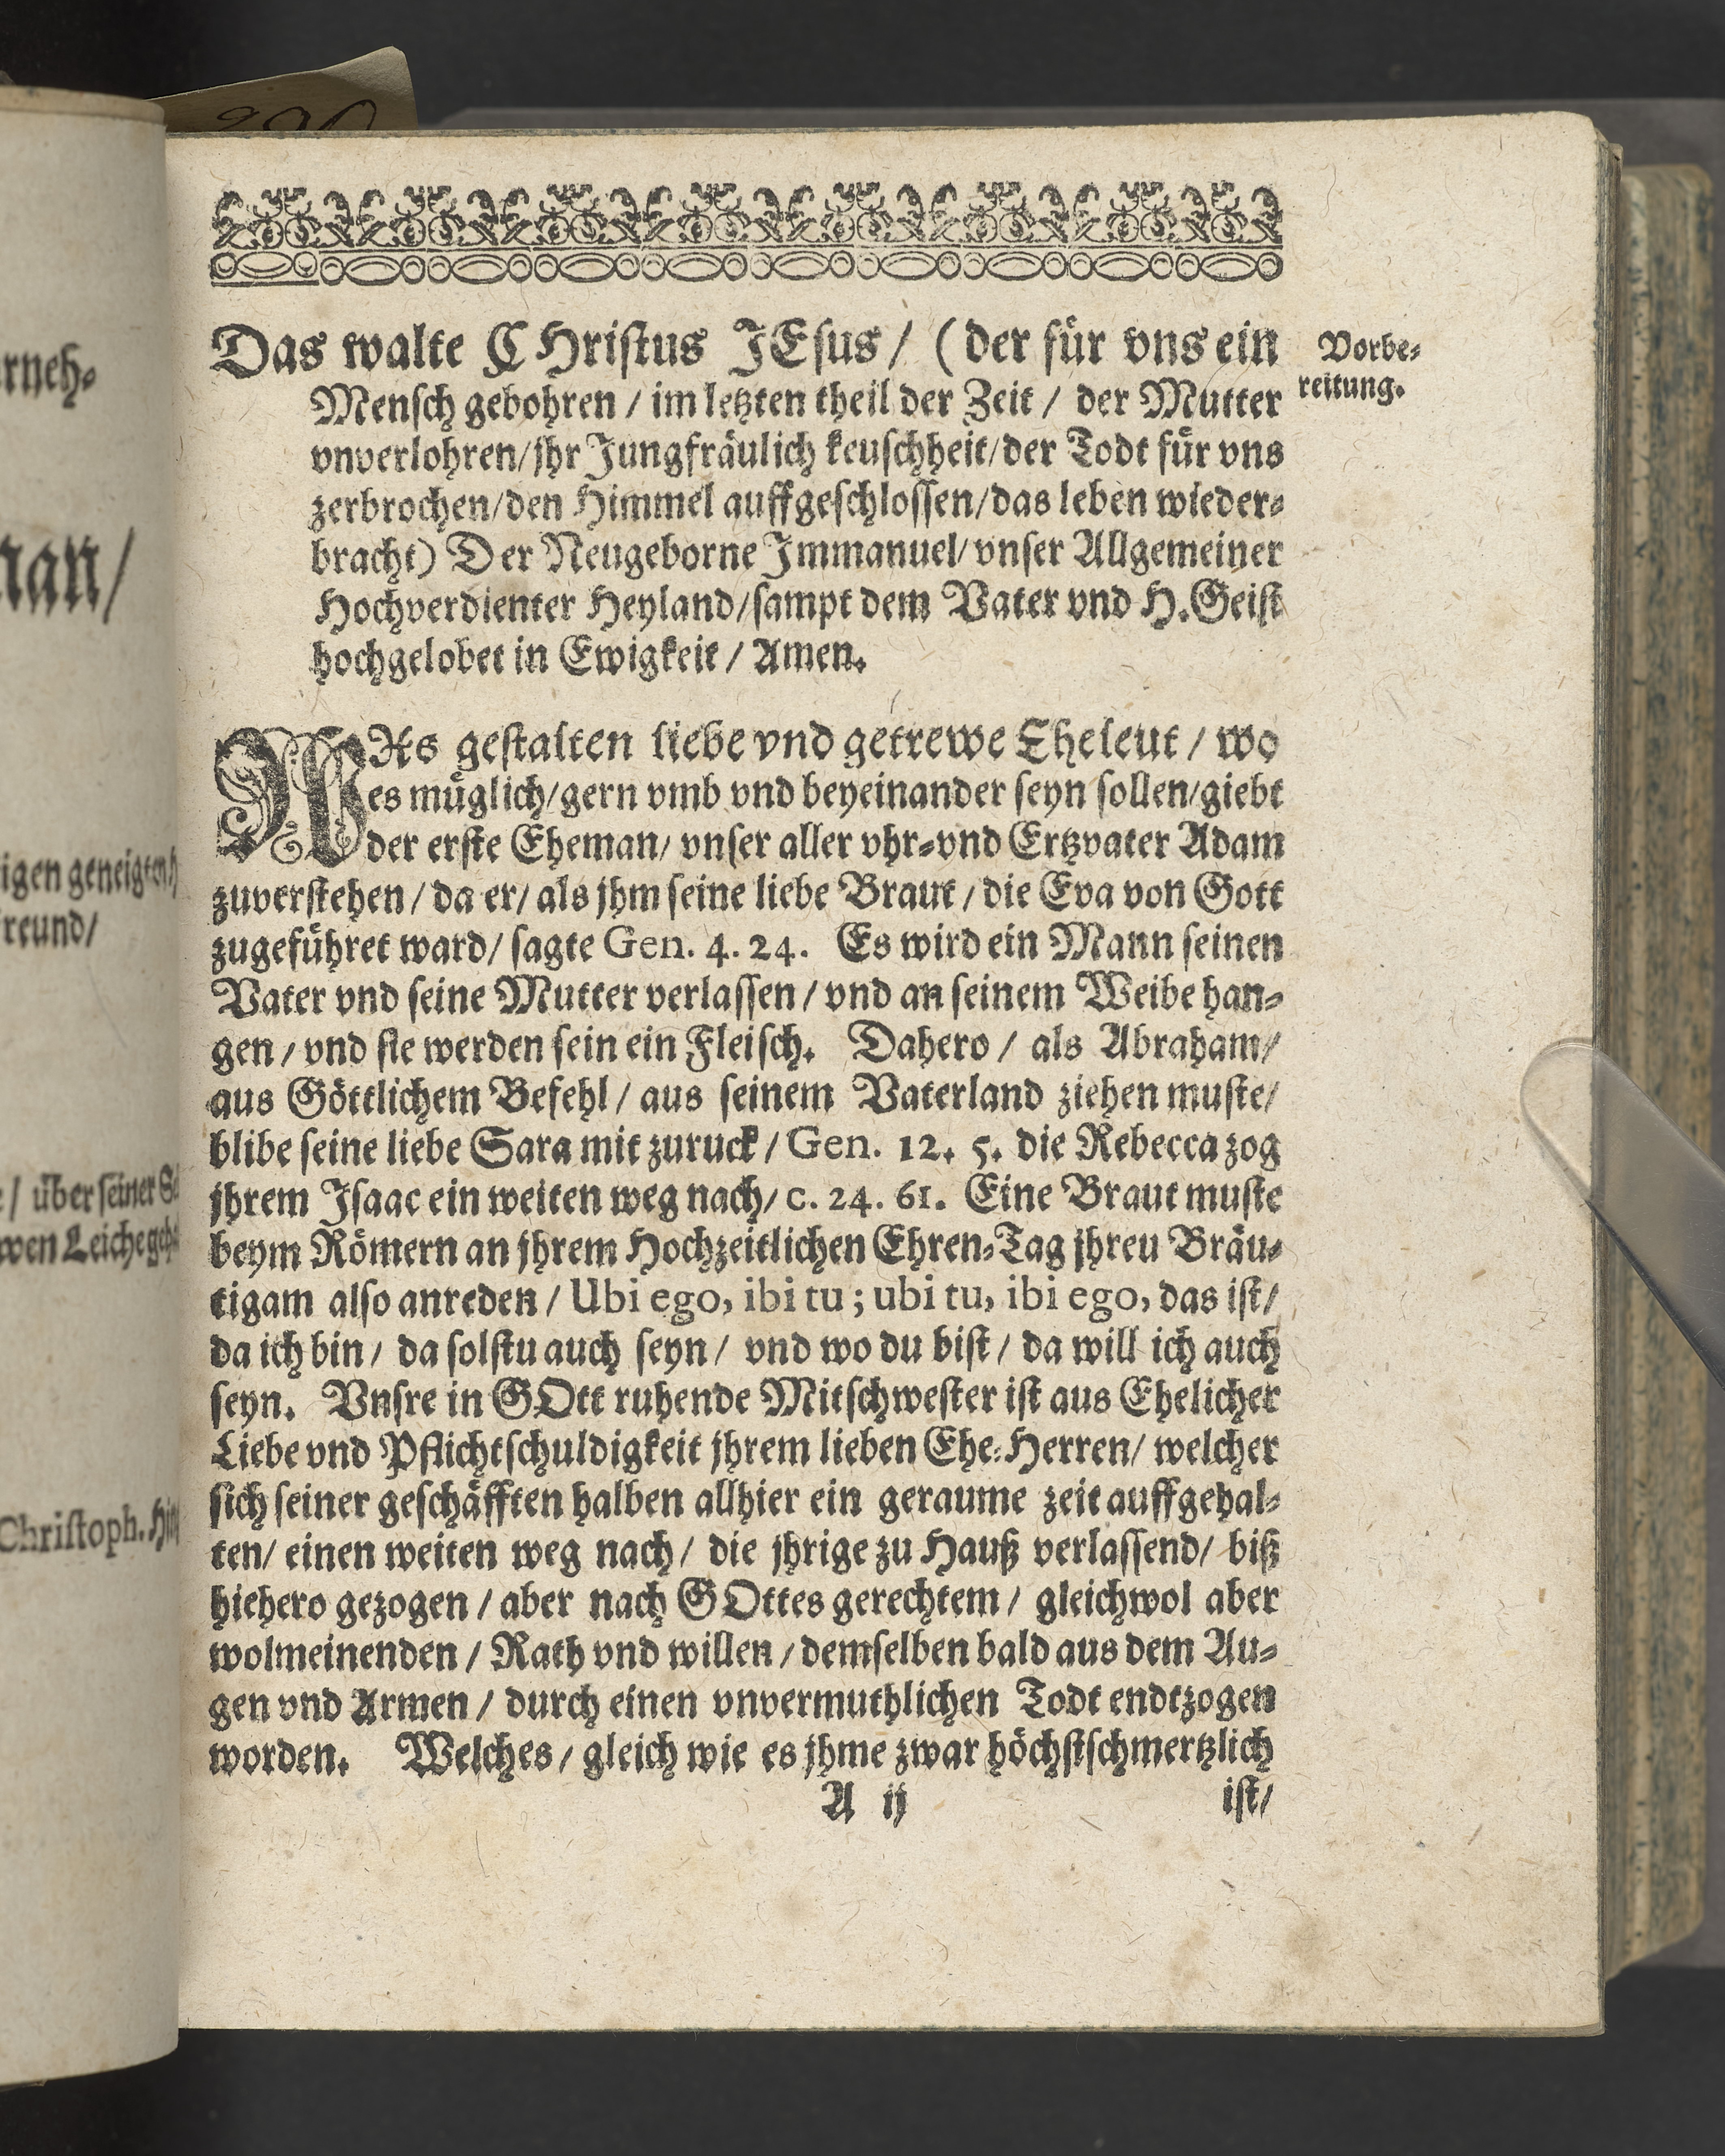 rneh⸗
nan/
igen geneigten
reund/
/ über seiner
wen Leiche
Christoph.
Das walte CHristus JEsus / (der für vns ein
Mensch gebohren / im letzten theil der Zeit / der Mutter
vnverlohren/jhr Jungfräulich keuschheit/der Todt für vns
zerbrochen/den Himmel auffgeschlossen/das leben wieder⸗
bracht) Der Neugeborne Immanuel/ vnser Allgemeiner
Hochverdienter Heyland/sampt dem Vater vnd H. Geist
hochgelobet in Ewigkeit / Amen.
Vorbe⸗
reitung.
WAs gestalten liebe vnd getrewe Eheleut / wo
es müglich/gern vmb vnd beyeinander seyn sollen/giebt
der erste Eheman/ vnser aller vhr⸗vnd Ertzvater Adam
zuverstehen / da er/ als jhm seine liebe Braut / die Eva von Gott
zugeführet ward/ sagte Gen. 4. 24. Es wird ein Mann seinen
Vater vnd seine Mutter verlassen / vnd an seinem Weibe han⸗
gen / vnd sie werden sein ein Fleisch. Dahero / als Abraham/
aus Göttlichem Befehl / aus seinem Vaterland ziehen muste/
blibe seine liebe Sara mit zuruck / Gen. 12. 5. die Rebecca zog
jhrem Isaac ein weiten weg nach/ c. 24. 61. Eine Braut muste
beym Römern an jhrem Hochzeitlichen Ehren⸗Tag jhreu Bräu⸗
tigam also anreden / Ubi ego, ibi tu ; ubi tu, ibi ego, das ist/
da ich bin / da solstu auch seyn / vnd wo du bist / da will ich auch
seyn. Vnsre in GOtt ruhende Mitschwester ist aus Ehelicher
Liebe vnd Pflichtschuldigkeit jhrem lieben Ehe⸗Herren/ welcher
sich seiner geschäfften halben allhier ein geraume zeit auffgehal⸗
ten/ einen weiten weg nach / die jhrige zu Hauß verlassend/ biß
hiehero gezogen / aber nach GOttes gerechtem / gleichwol aber
wolmeinenden / Rath vnd willen / demselben bald aus dem Au⸗
gen vnd Armen / durch einen vnvermuthlichen Todt endtzogen
worden. Welches / gleich wie es jhme zwar höchstschmertzlich
A ij ist/